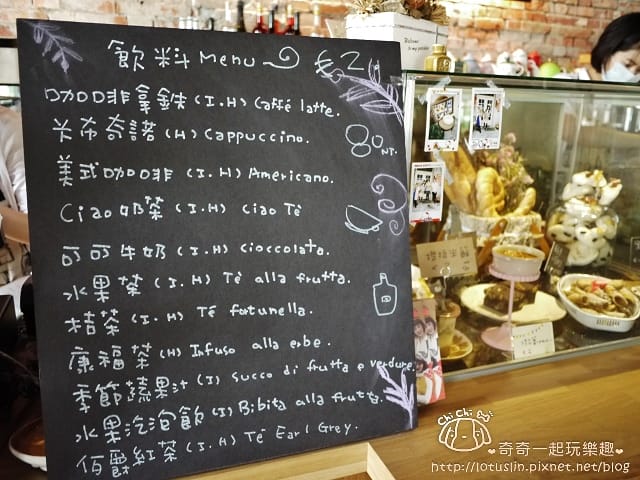 飲料 Menu €2
咖啡拿鐵 (I.H) Caffé latte.
卡布奇諾 (H) Cappuccino.
80 NT.
美式咖啡 (I.H) Americano.
Ciao奶茶 (I.H) Ciao Tè
可可牛奶 (I.H) Cioccolata.
水果茶 (I.H) Tè alla frutta.
桔茶 (I.H) Té fortunella.
康福茶 (H) Infuso alla erbe.
季節蔬果汁 (I) Succo di frutta e verdure.
水果汽泡飲 (I) Bibita alla frutta.
伯爵紅茶 (I.H) Té Earl Grey.
Chi Chi
奇奇一起玩樂趣
http://lotuslin.pixnet.net/blog